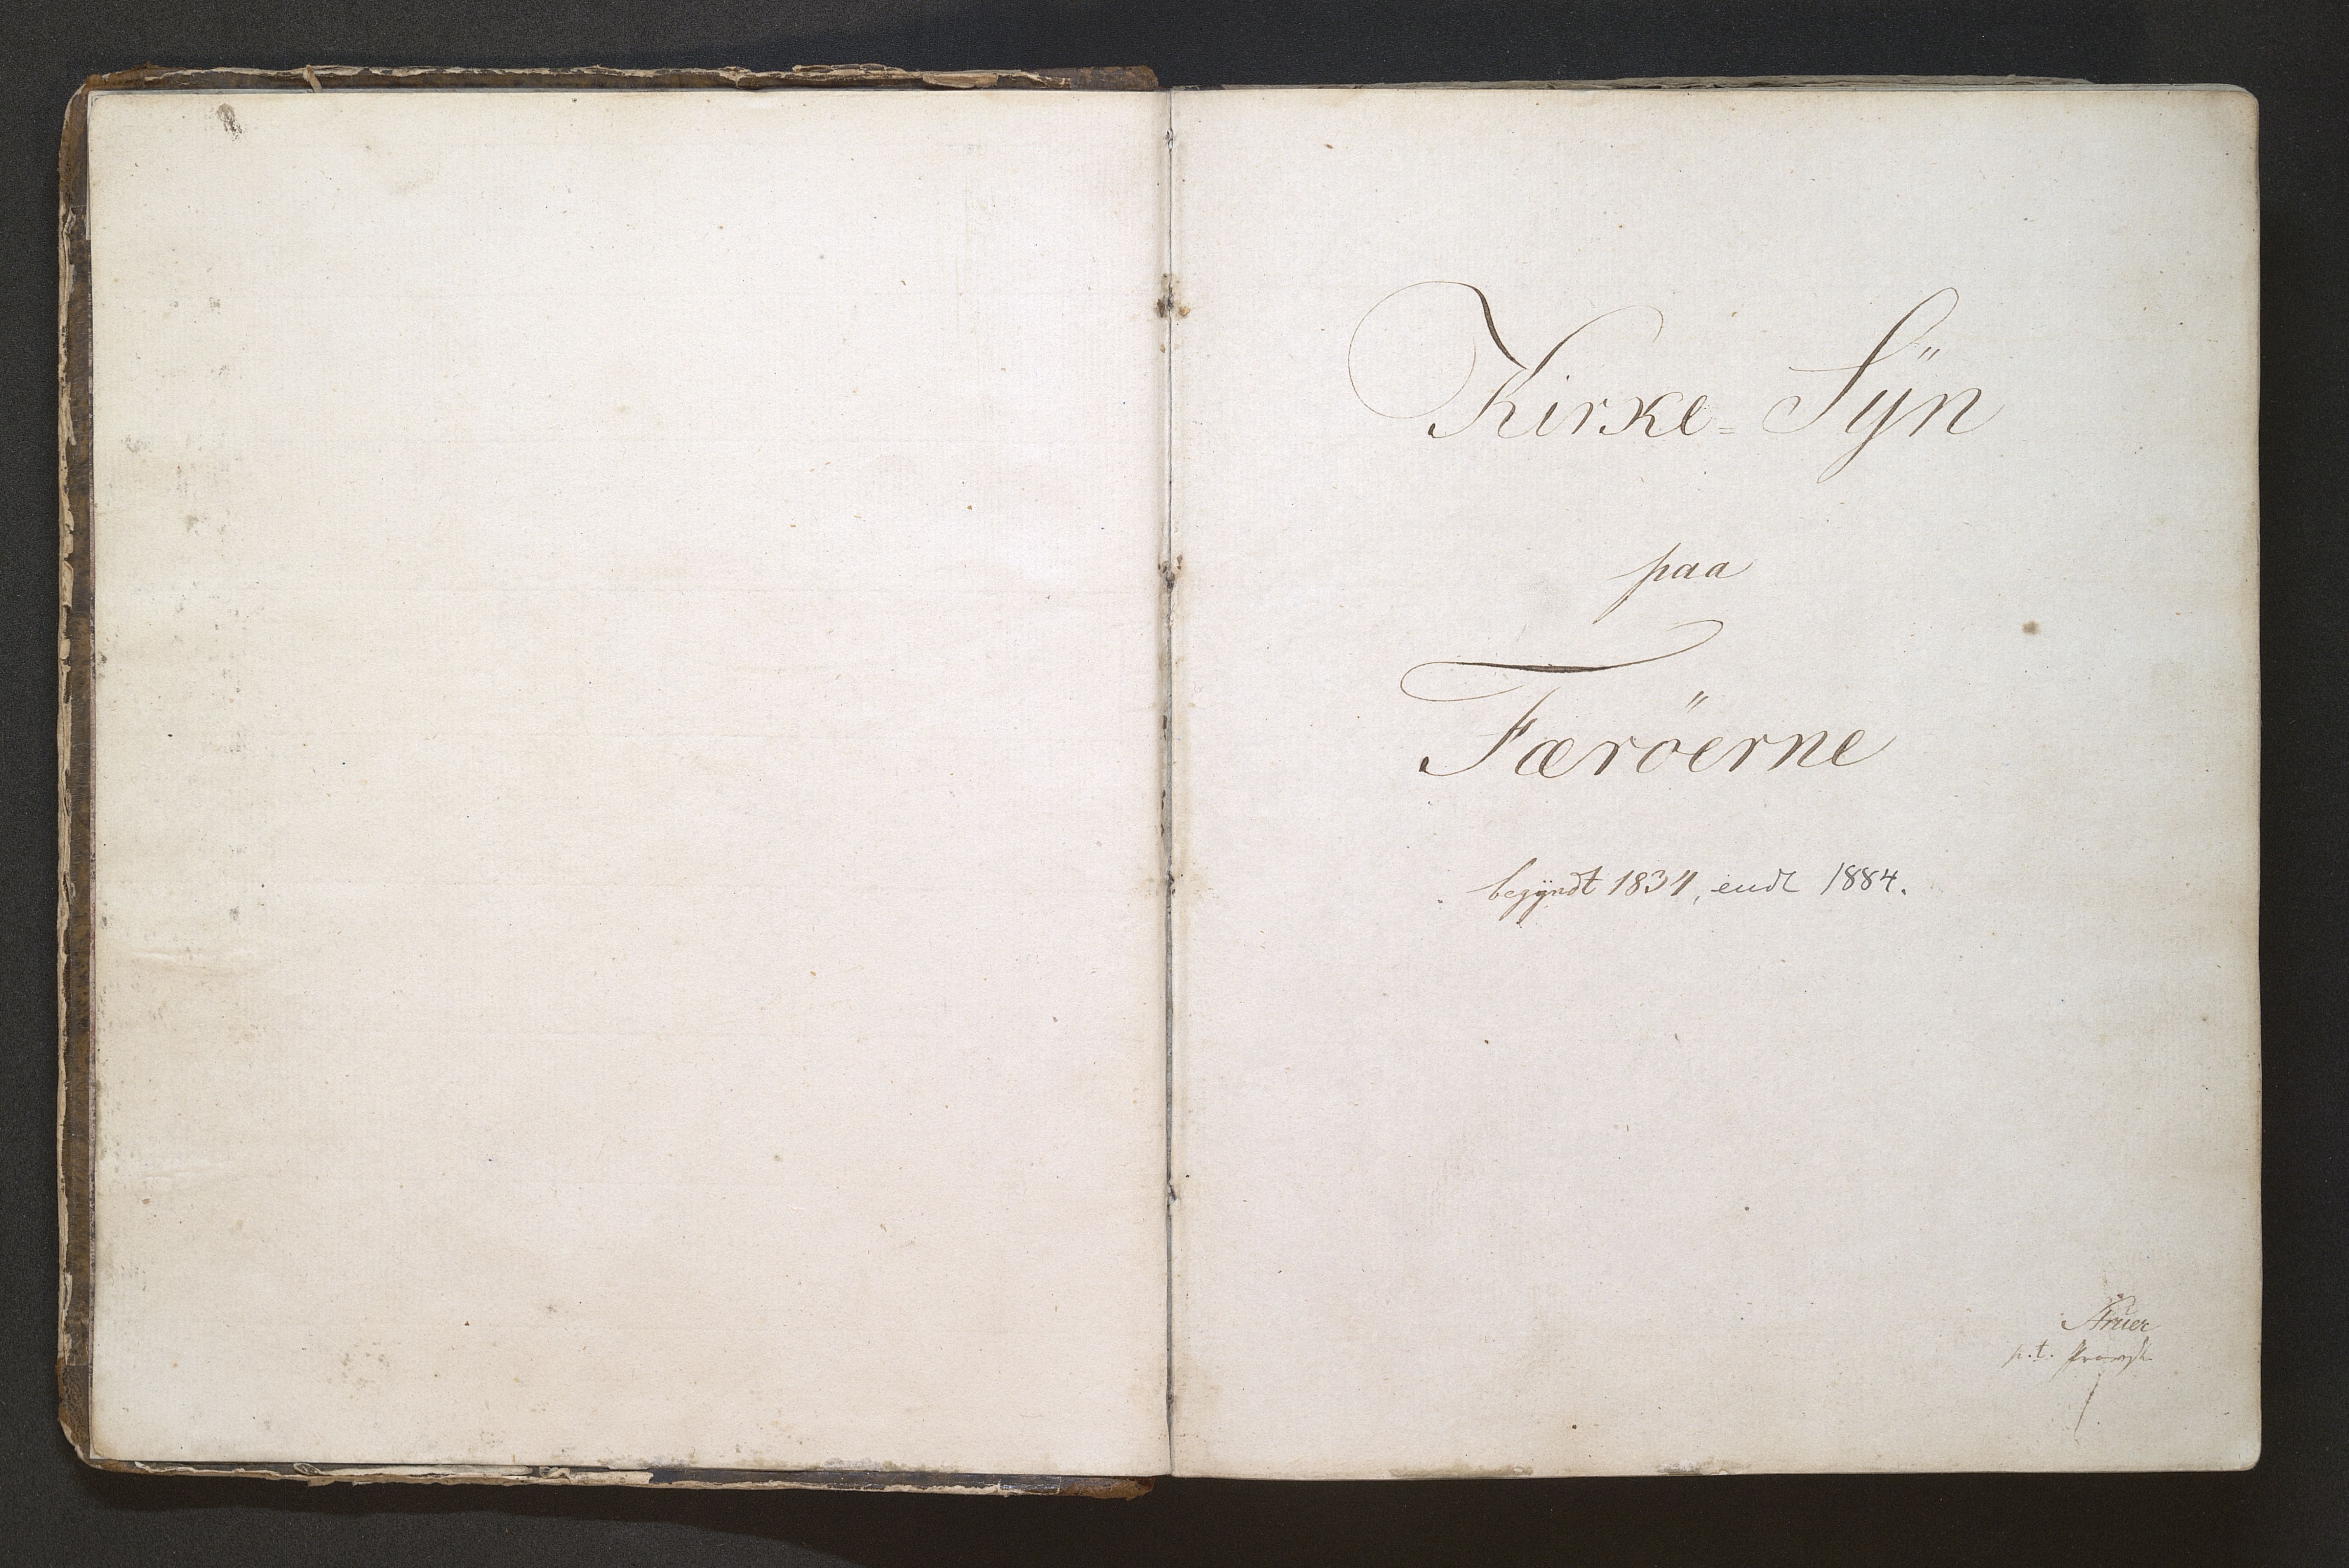 Kirke= Sÿn
paa
Færöerne
begÿndt 1834, endt 1884.
p.t.